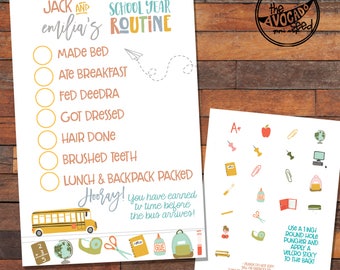 JACK AND
emilia's
SCHOOL YEAR
ROUTINE
MADE BED
ATE BREAKFAST
FED DEEDRA
GOT DRESSED
HAIR DONE
BRUSHED TEETH
LUNCH & BACKPACK PACKED
Hooray! You have earned
tv time before
the bus arrives!
the
AVOCADO
seed
A+
USE A 1 INCH
ROUND HOLE
PUNCHER AND
APPLY A
VELCRO STICKY
TO THE BACK!